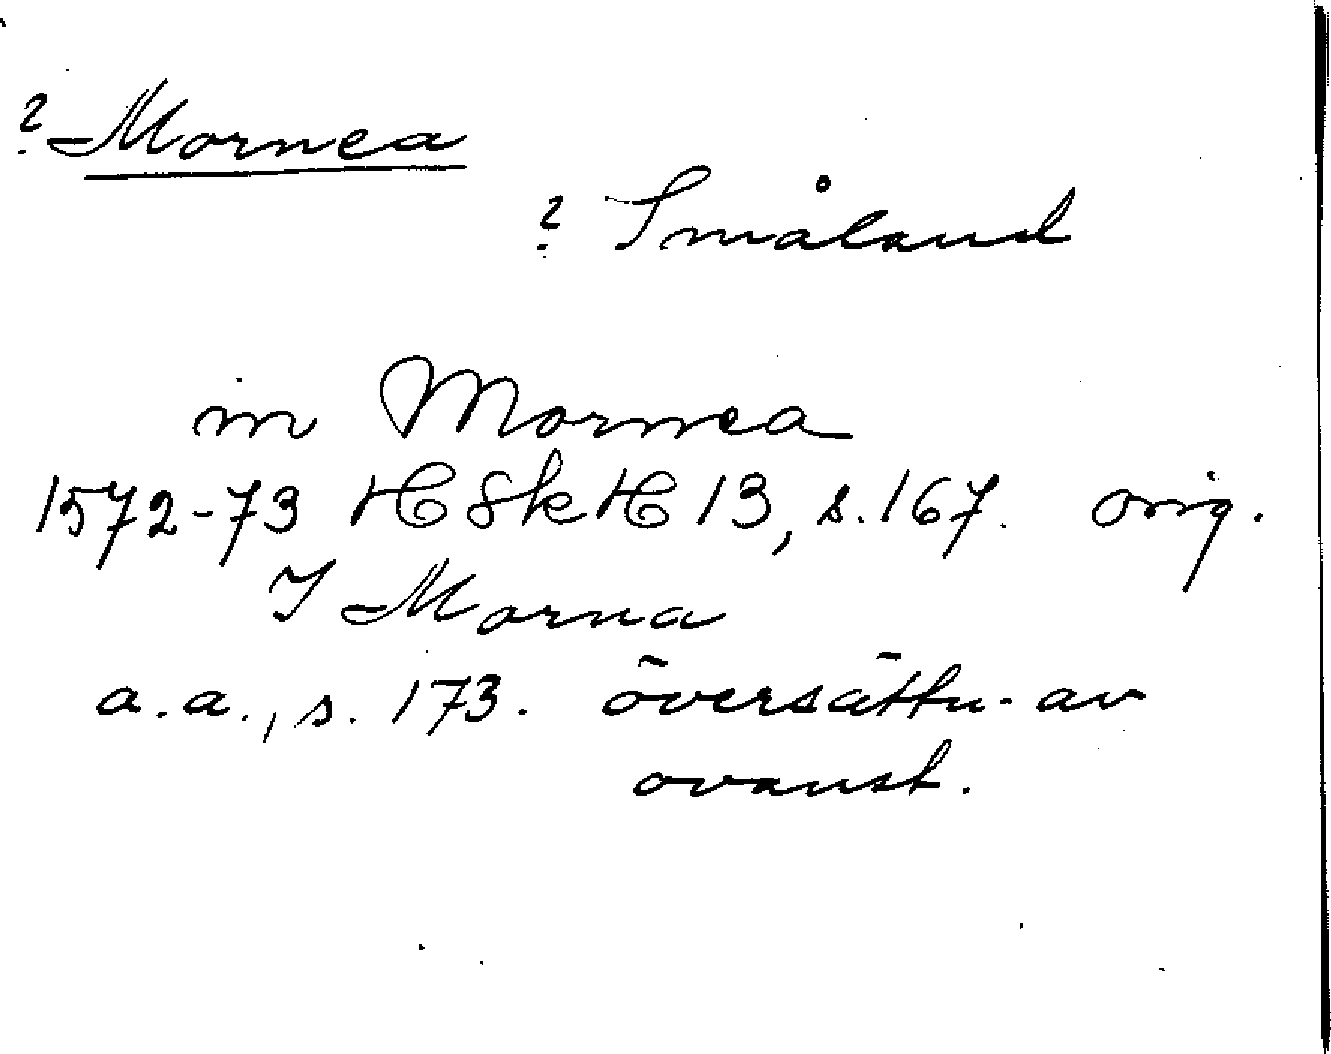 ? Mornea
? Småland
in Mornea
1572-73 HSkH 13, s. 167. orig.
I Morna
a.a., s. 173. översättn. av
ovanst.